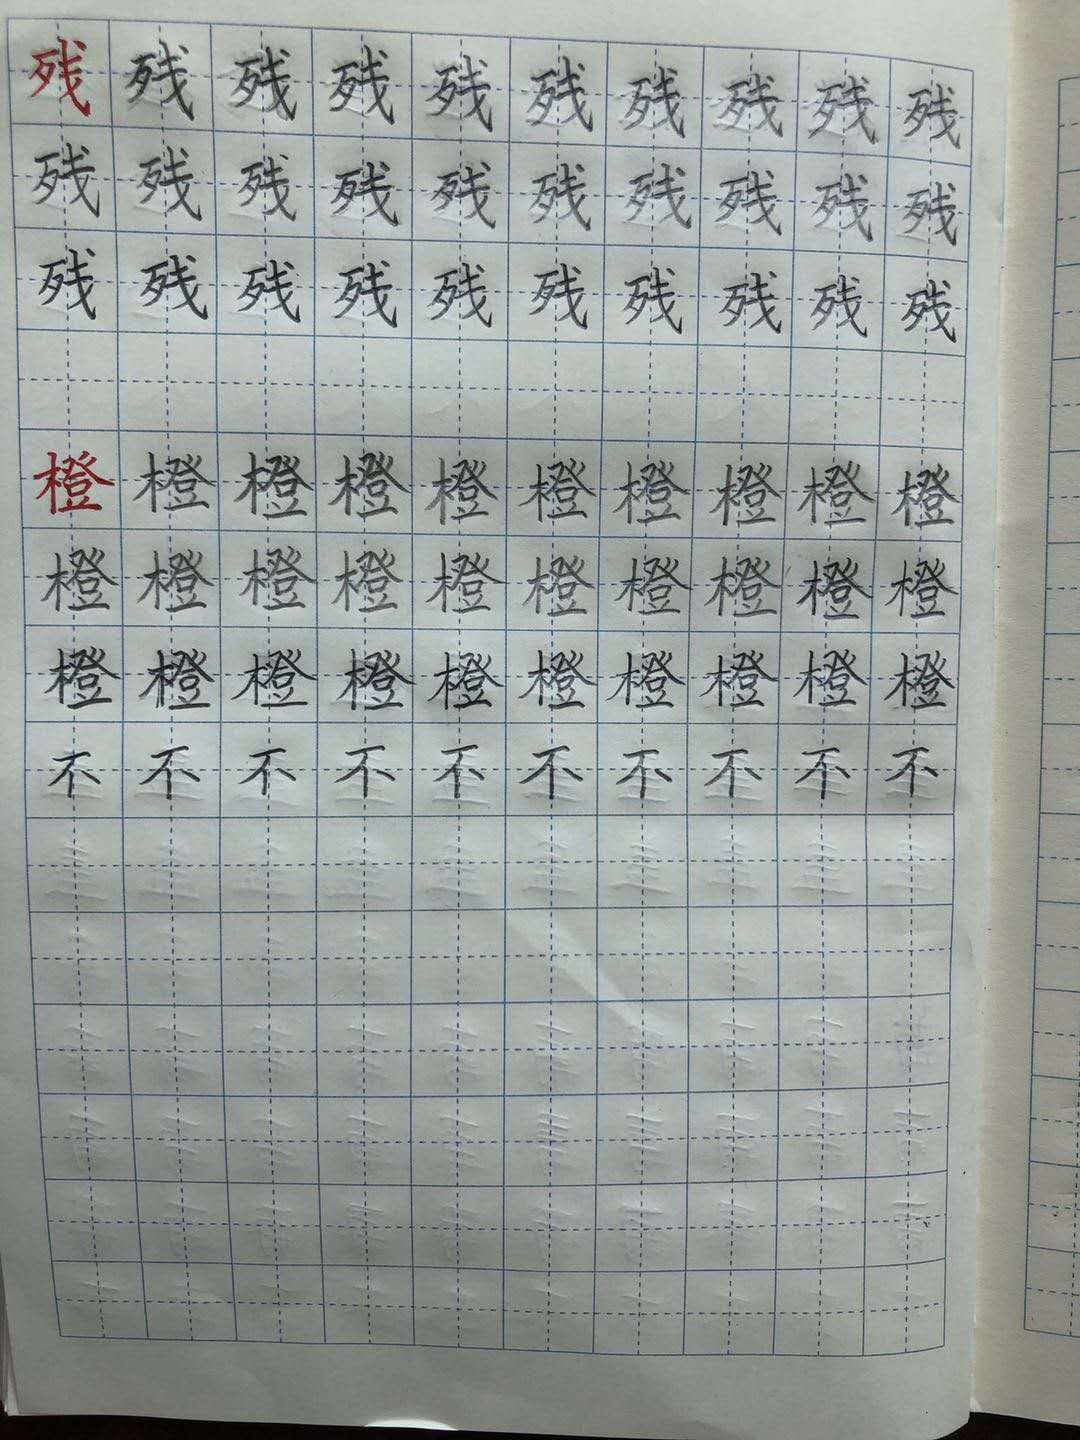 残残残残残残残残残残
残残残残残残残残残残
残残残残残残残残残残
橙橙橙橙橙橙橙橙橙橙
橙橙橙橙橙橙橙橙橙橙
橙橙橙橙橙橙橙橙橙橙
不不不不不不不不不不